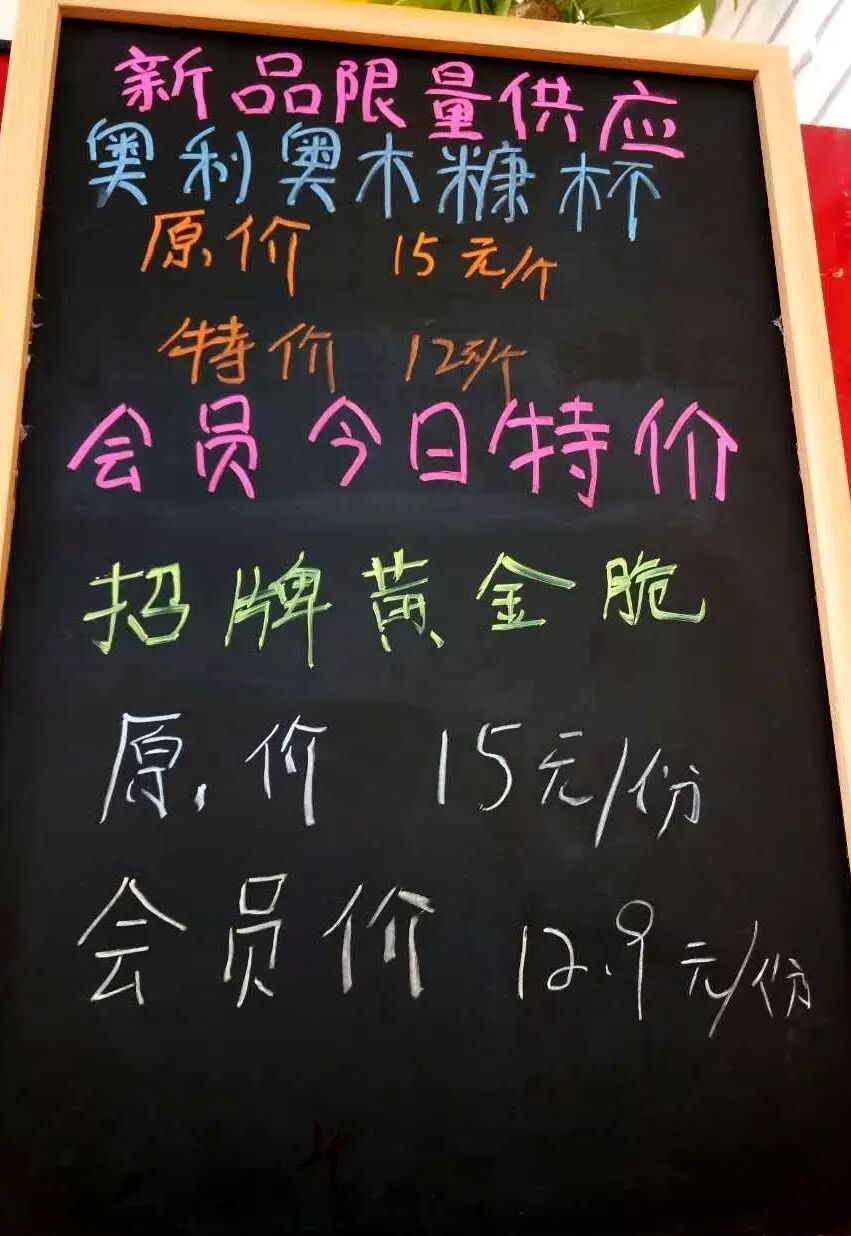 新品限量供应
奥利奥木糠杯
原价 15元/个
特价 12元/个
会员今日特价
招牌黄金脆
原价 15元/份
会员价 12.9元/份